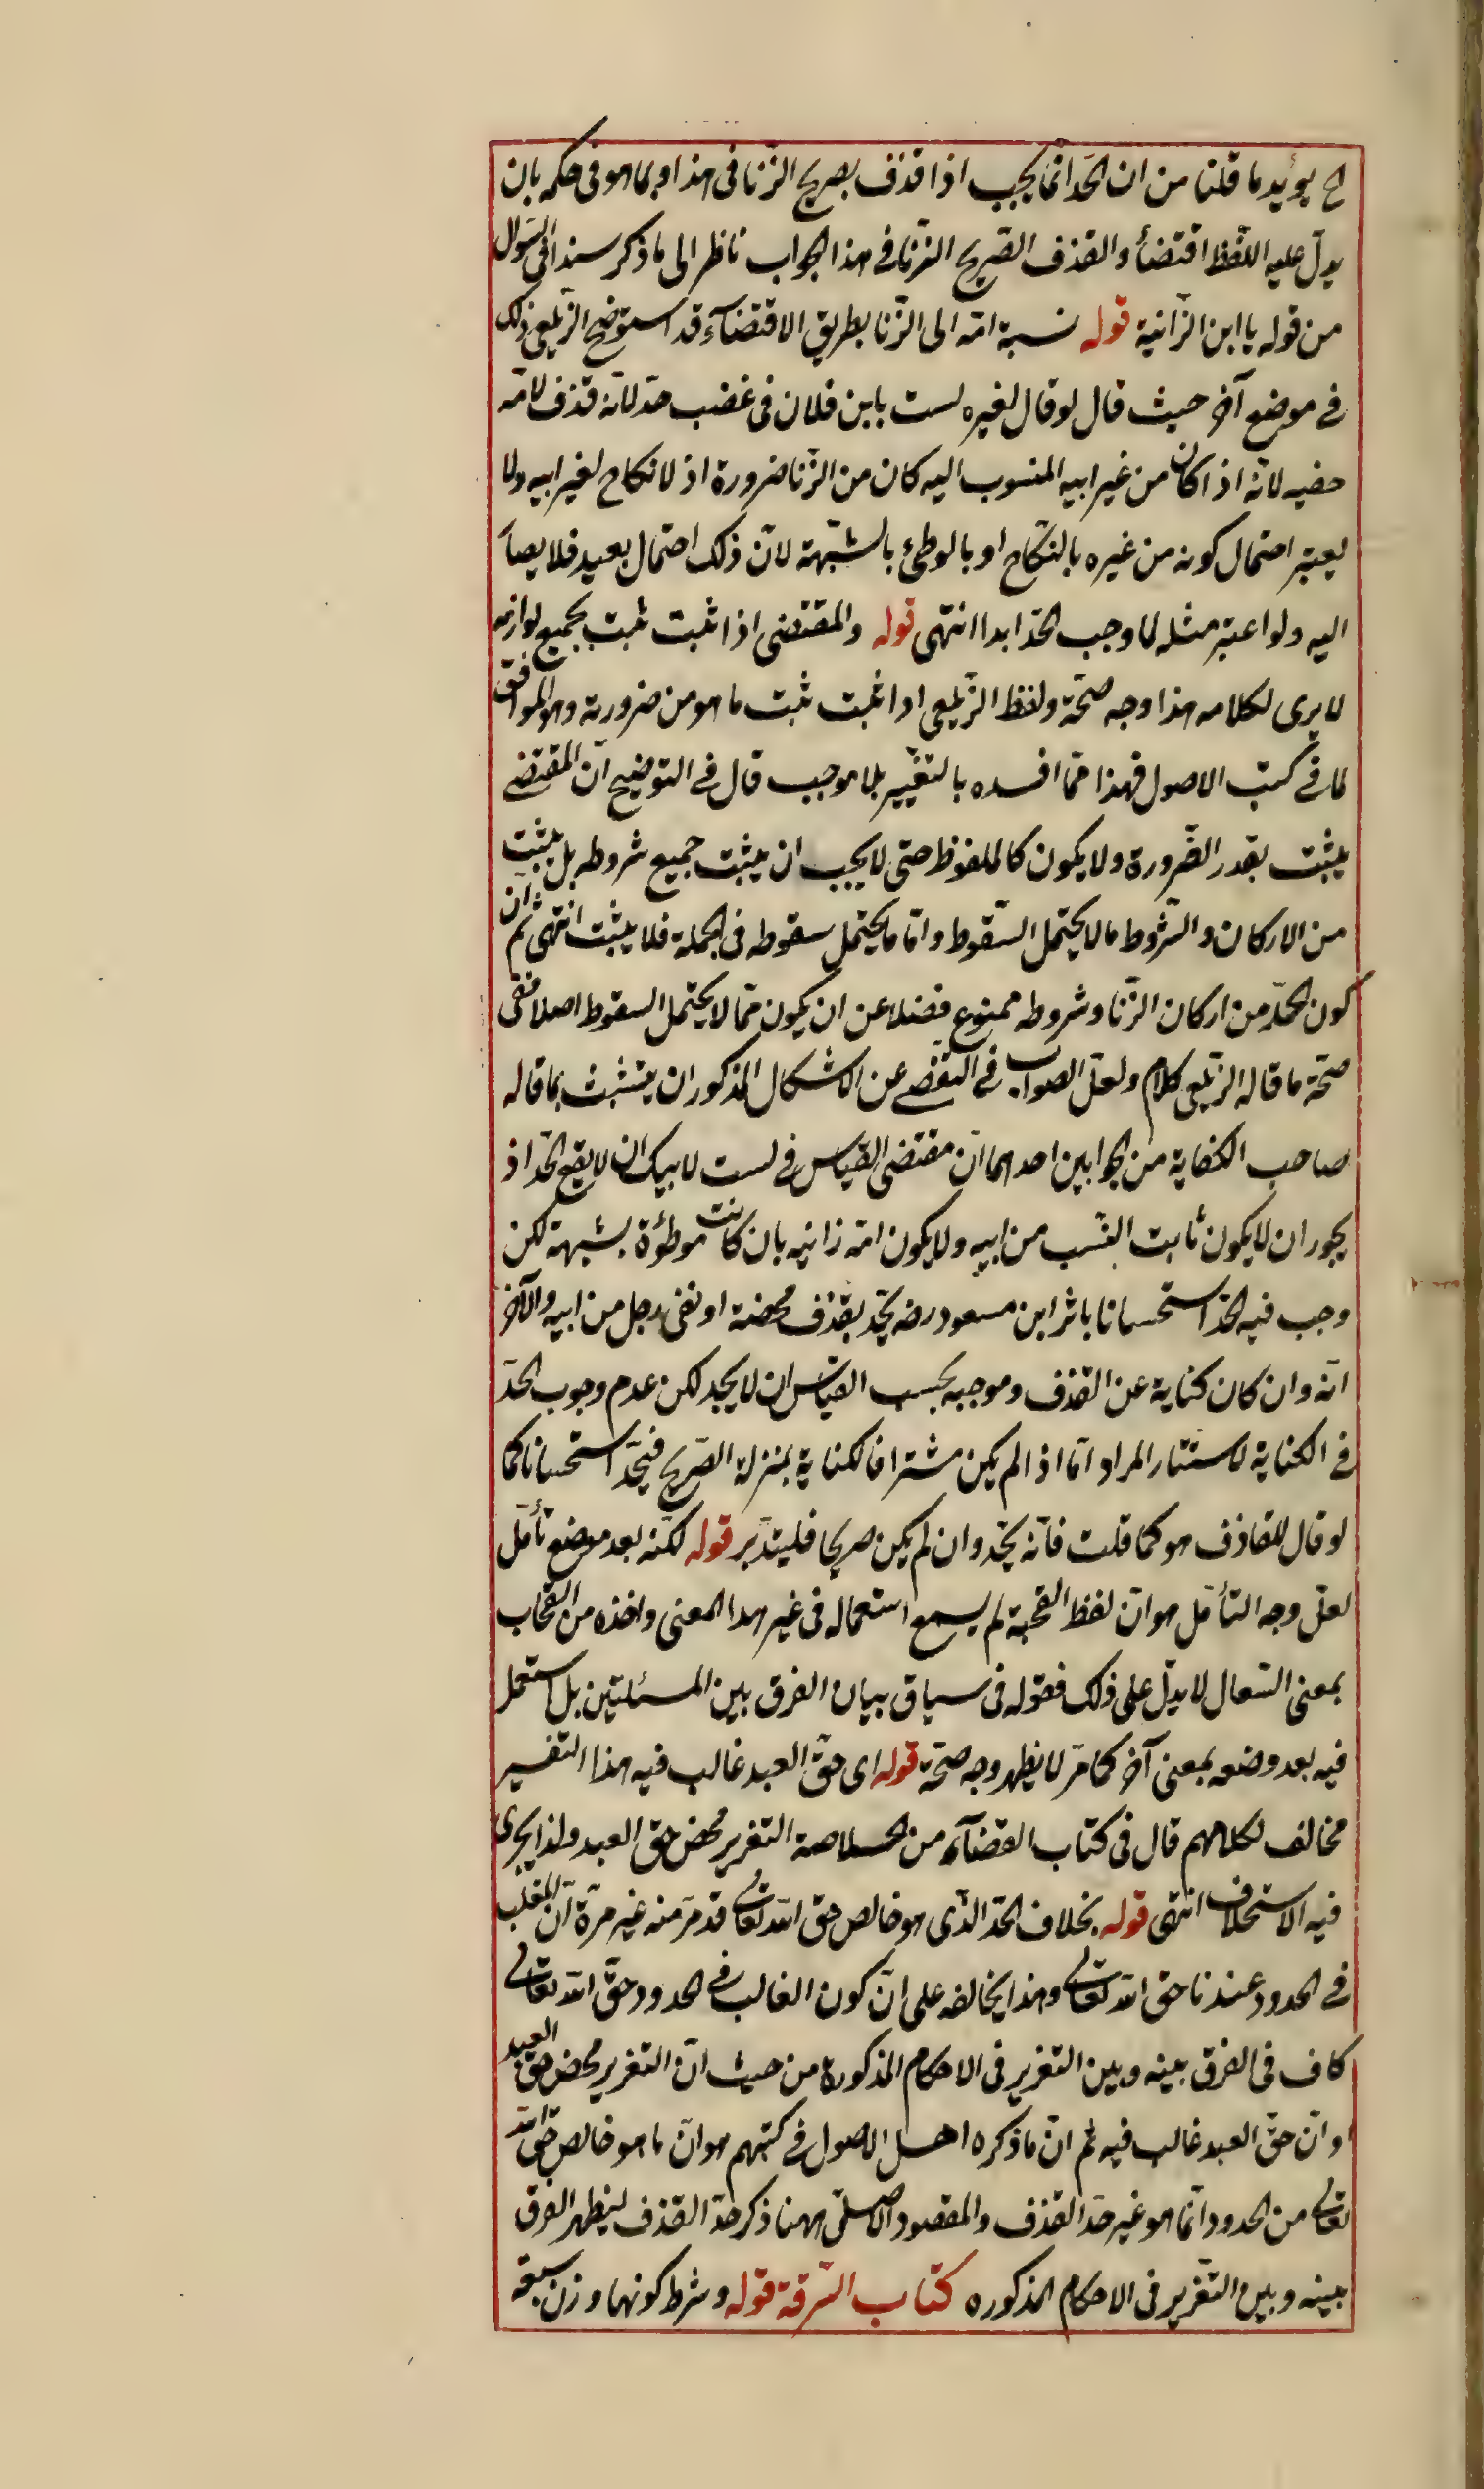 ح يؤيد ما قلنا من ان الحد انما يجب اذا قذف بصريح الزنا في هذا او بما هو في حكمه بان
يدل عليه اللفظ اقتضأ والقذف الصريح الزنا في هذا الجواب ناظر الى ما ذكر سندا في السؤال
من قوله يا ابن الزانية قوله نسبة امه الى الزنا بطريق الاقتضآء قد استوضح الزيلعي ذلك
في موضع آخر حيث قال لو قال لغيره لست بابن فلان في غضب حد لانه قذف لامه
لانه اذا كان من غير ابيه المنسوب اليه كان من الزنا ضرورة اذ لا نكاح لغير ابيه ولا
يعتبر احتمال كونه من غيره بالنكاح او بالوطئ بالشبهة لان ذلك احتمال بعيد فلا يصا
اليه ولو اعتبر مثله لما وجب الحد ابدا انتهى قوله والمقتضى اذا ثبت ثبت بجميع لوازمه
لا يرى لكلامه هذا وجه صحة ولفظ الزيلعي اذا ثبت ثبت ما هو من ضرورته وهو الموافق
لما في كتب الاصول فهذا مما افسده بالتغيير بلا موجب قال في التوضيح ان المقتضى
يثبت بقدر الضرورة ولا يكون كالملفوظ حتى لا يجب ان يثبت جميع شروطه بل يثبت
من الاركان والشروط ما لا يحتمل السقوط واما ما يحتمل سقوطه في الجملة فلا يثبت انتهى ثم ان
كون الحد من اركان الزنا وشروطه ممنوع فضلا عن ان يكون مما لا يحتمل السقوط اصلا ففي
صحة ما قاله الزيلعي كلام ولعل الصواب في التفصى عن الاشكال المذكور ان يتشبث بما قاله
صاحب الكفاية من الجوابين احدهما ان مقتضى القياس في لست لابيك ان لا يقع الحد اذ
يجوز ان لا يكون ثابت النسب من ابيه ولا يكون امه زانيه بان كانت موطؤة بشبهة لكن
وجب فيه الحد استحسانا باثر ابن مسعود رضه يحد بقذف محصنة او نفى رجل من ابيه والآخر
انه وان كان كناية عن القذف وموجبه بحسب القياس ان لا يحد لكن عدم وجوب الحد
في الكناية لاستتار المراد اما اذا لم يكن مشترا فالكناية بمنزلة الصريح فيحد استحسانا كما
لو قال للقاذف هو كما قلت فانه يحد وان لم يكن صريحا فليتدبر قوله لكنه بعد موضع تأمل
لعل وجه التأمل هو ان لفظ القحبة لم يسمع استعماله في غير هذا المعنى واخذه من القحاب
بمعنى السعال لا يدل على ذلك فقوله في سياق بيان الفرق بين المسئلتين بل استعمل
فيه بعد وضعه بمعنى آخر كما مر لا يظهر وجه صحة قوله اى حق العبد غالب فيه هذا التفسير
مخالف لكلامهم قال في كتاب القضآء من الخلاصة التعزير محض حق العبد ولذا يجرى
فيه الاستحلاف انتهى قوله بخلاف الحد الذى هو خالص حق الله تعالى قد مر منه غير مرة ان المغلب
في الحدود عندنا حق الله تعالى وهذا يخالفه على ان كون الغالب في الحدود حق الله تعالى
كاف في الفرق بينه وبين التعزير في الاحكام المذكورة من حيث ان التعزير محض حق العبد
او ان حق العبد غالب فيه ثم ان ما ذكره اهل الاصول في كتبهم هو ان ما هو خالص حق الله
تعالى من الحدود انما هو غير حد القذف والمقصود الاصلى ههنا ذكر حد القذف ليظهر الفرق
بينه وبين التعزير في الاحكام المذكوره كتاب السرقة قوله وشرط كونها وزن سبعة